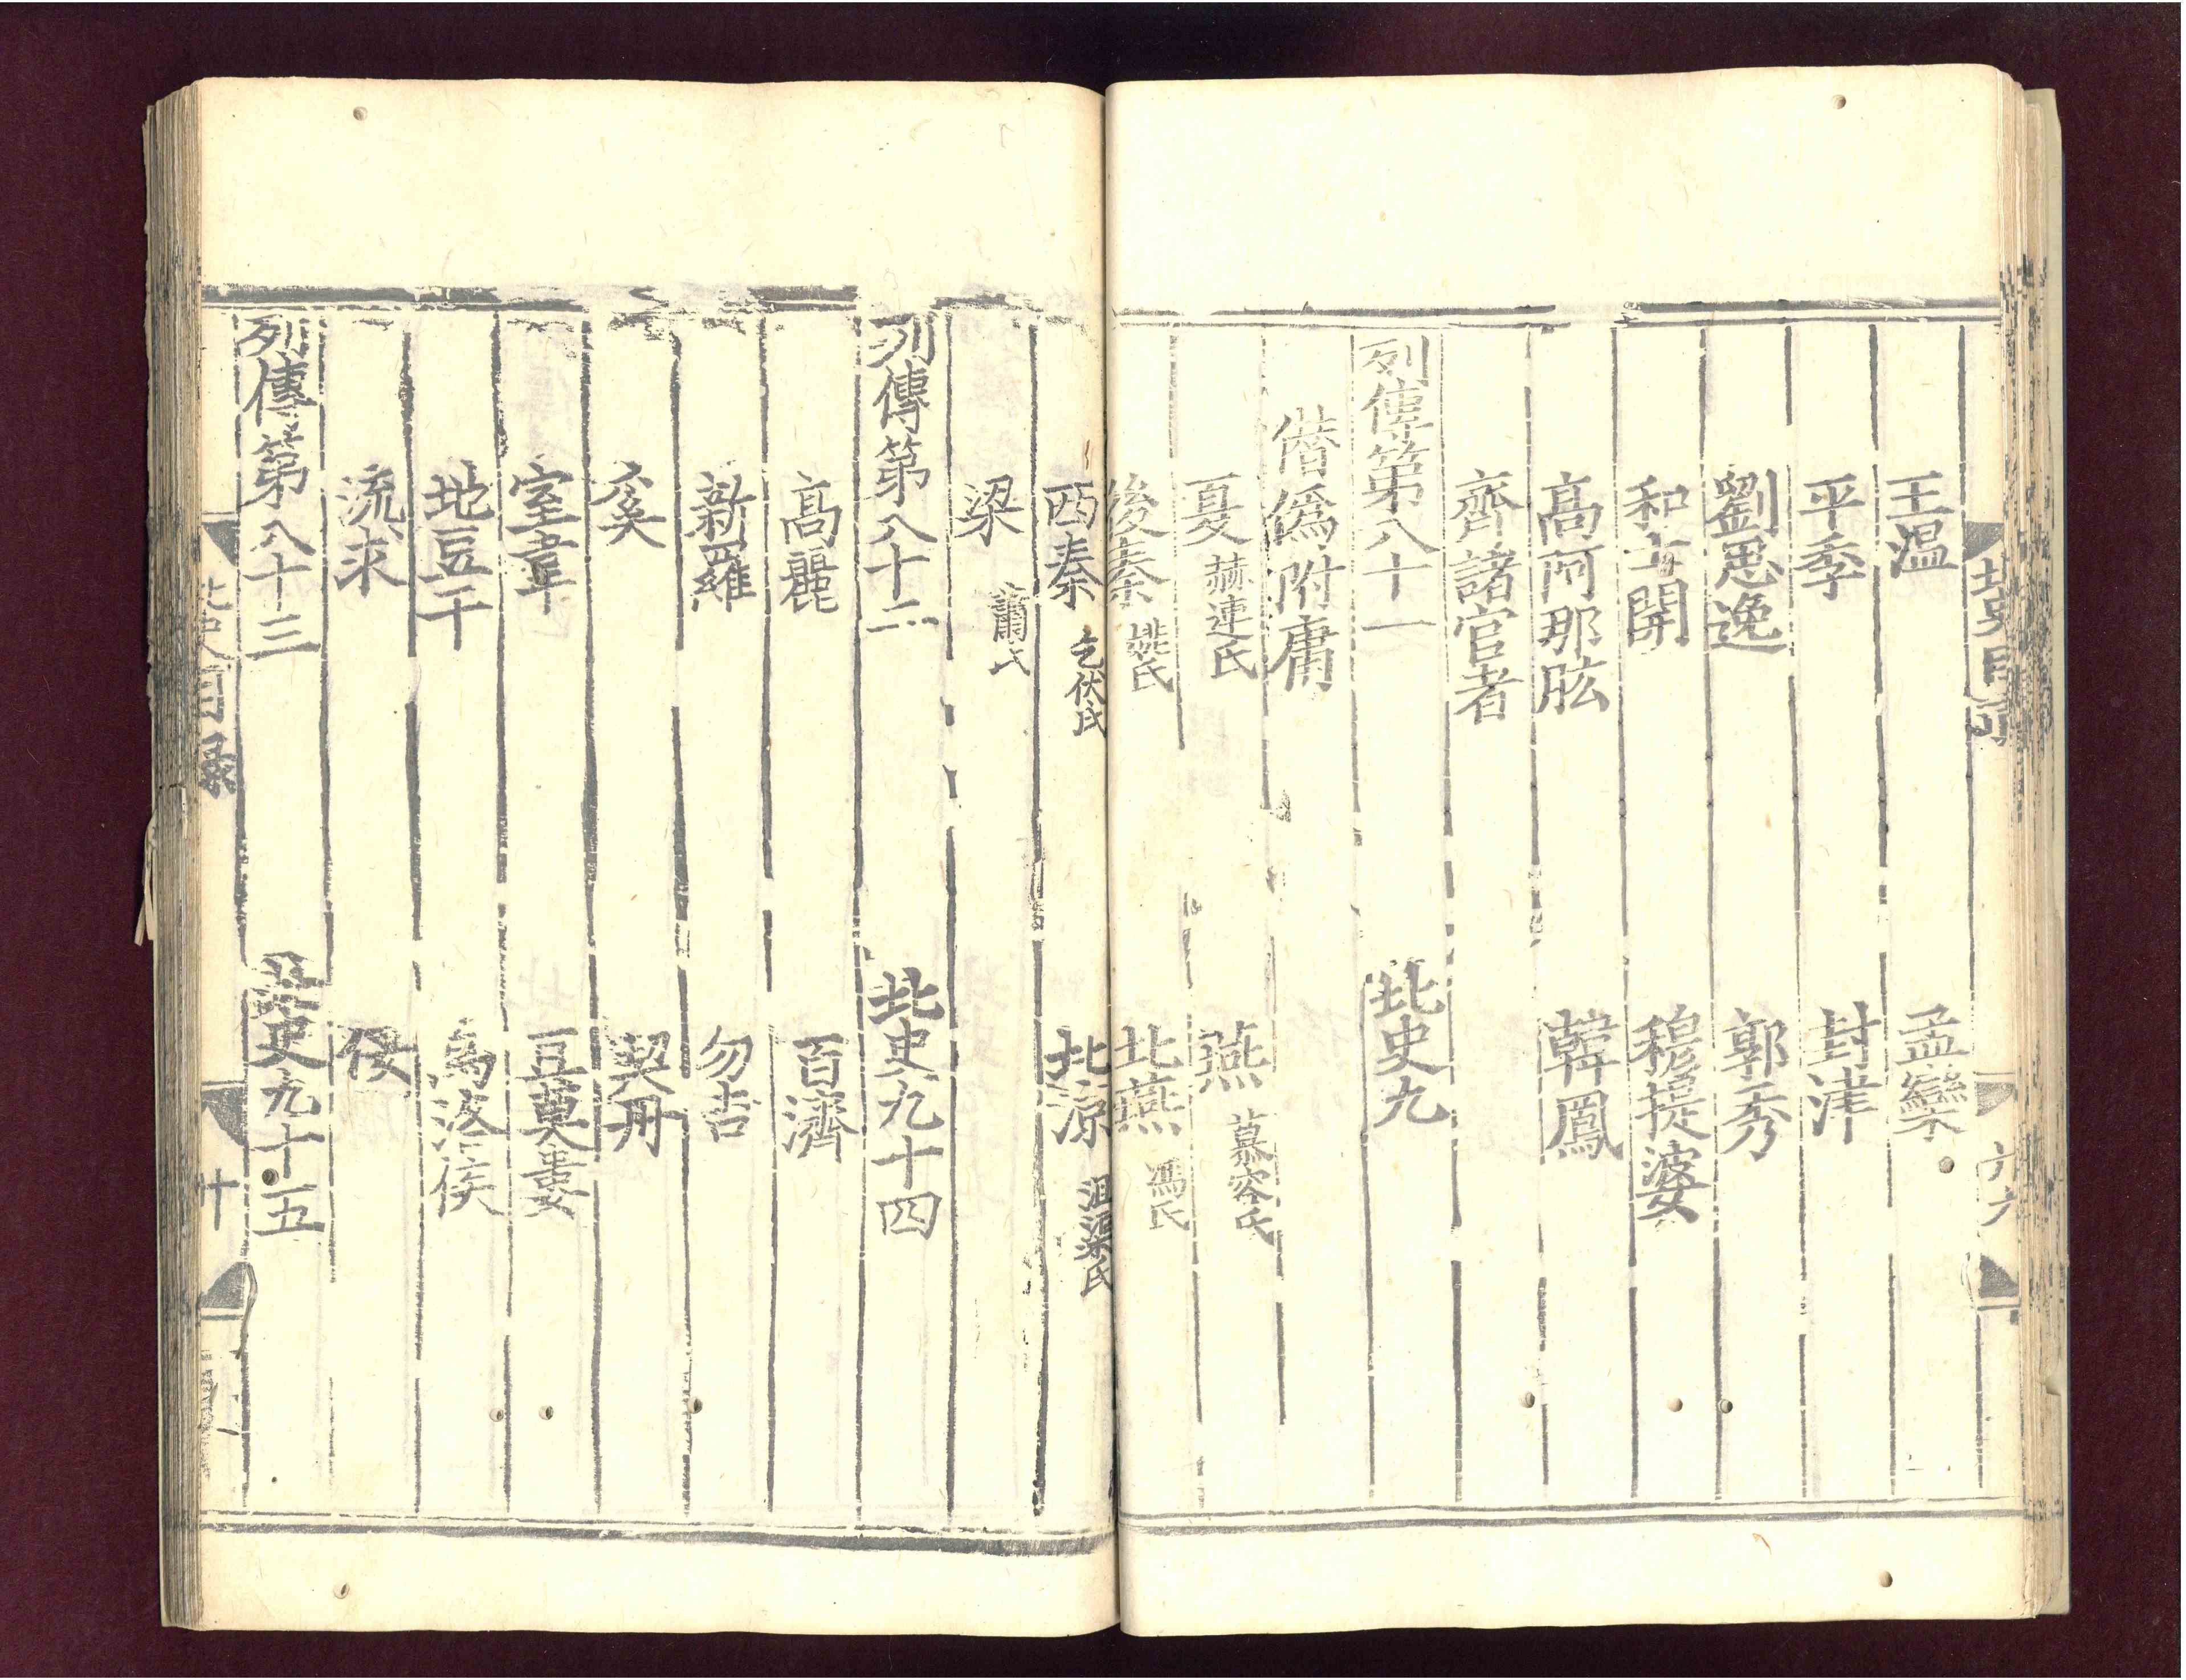 王温　孟欒
平季　封津
劉思逸　郭秀
和士開　穆提婆
高阿那肱　韓鳳
齊諸宦者
列傳第八十一　北史九
僭偽附庸
夏 赫連氏　燕 慕容氏
後秦 姚氏　北燕 馮氏
西秦 乞伏氏　北涼 沮渠氏
梁 蕭氏
列傳第八十二　北史九十四
高麗　百濟
新羅　勿吉
奚　契丹
室韋　豆莫婁
地豆干　烏洛侯
流求　倭
列傳第八十三　北史九十五
北史目錄　十